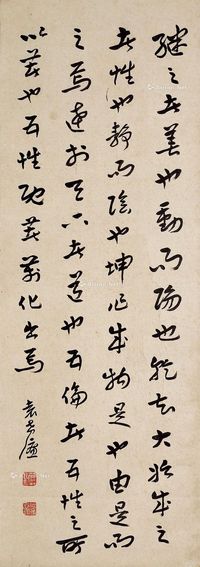 繼之者善也動而陽也乾知大始成之
者性也靜而陰也坤作成物是也由是而
之焉達於天下者道也五倫者五性之所
以著也五性既著萬化出焉
袁